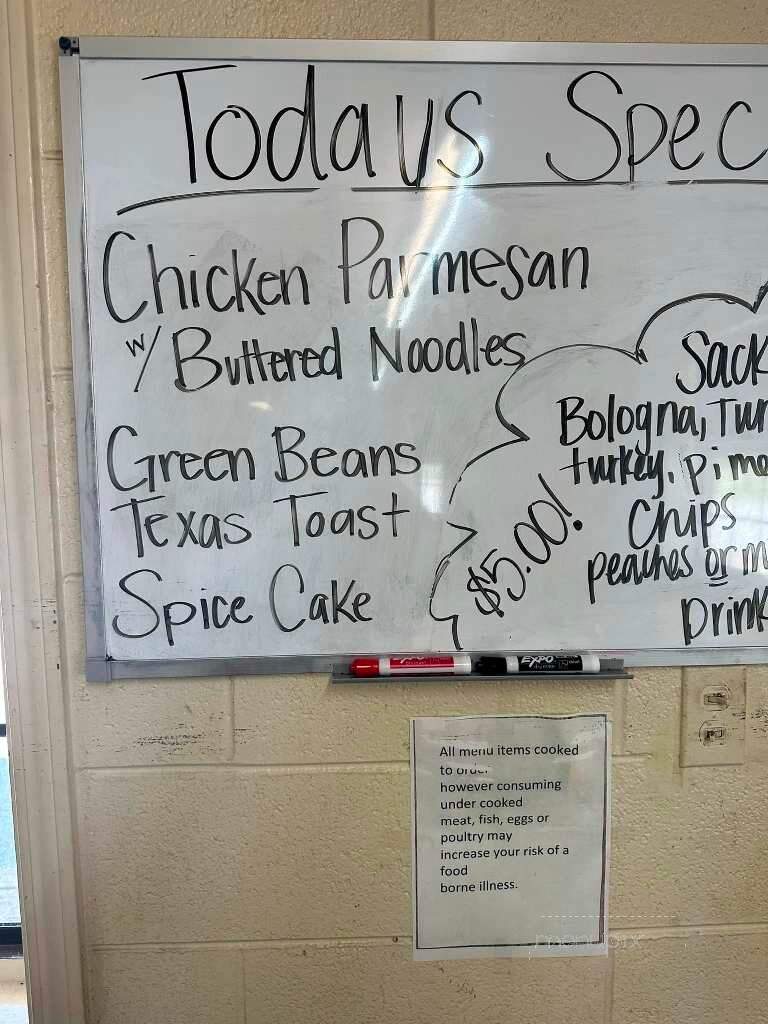 Todays Spec
Chicken Parmesan
w/ Buttered Noodles
Green Beans
Texas Toast
Spice Cake
Sack
Bologna, Tur
turkey, pime
Chips
peaches or m
Drink
$5.00!
EXPO
All menu items cooked
to order
however consuming
under cooked
meat, fish, eggs or
poultry may
increase your risk of a
food
borne illness.
menupix